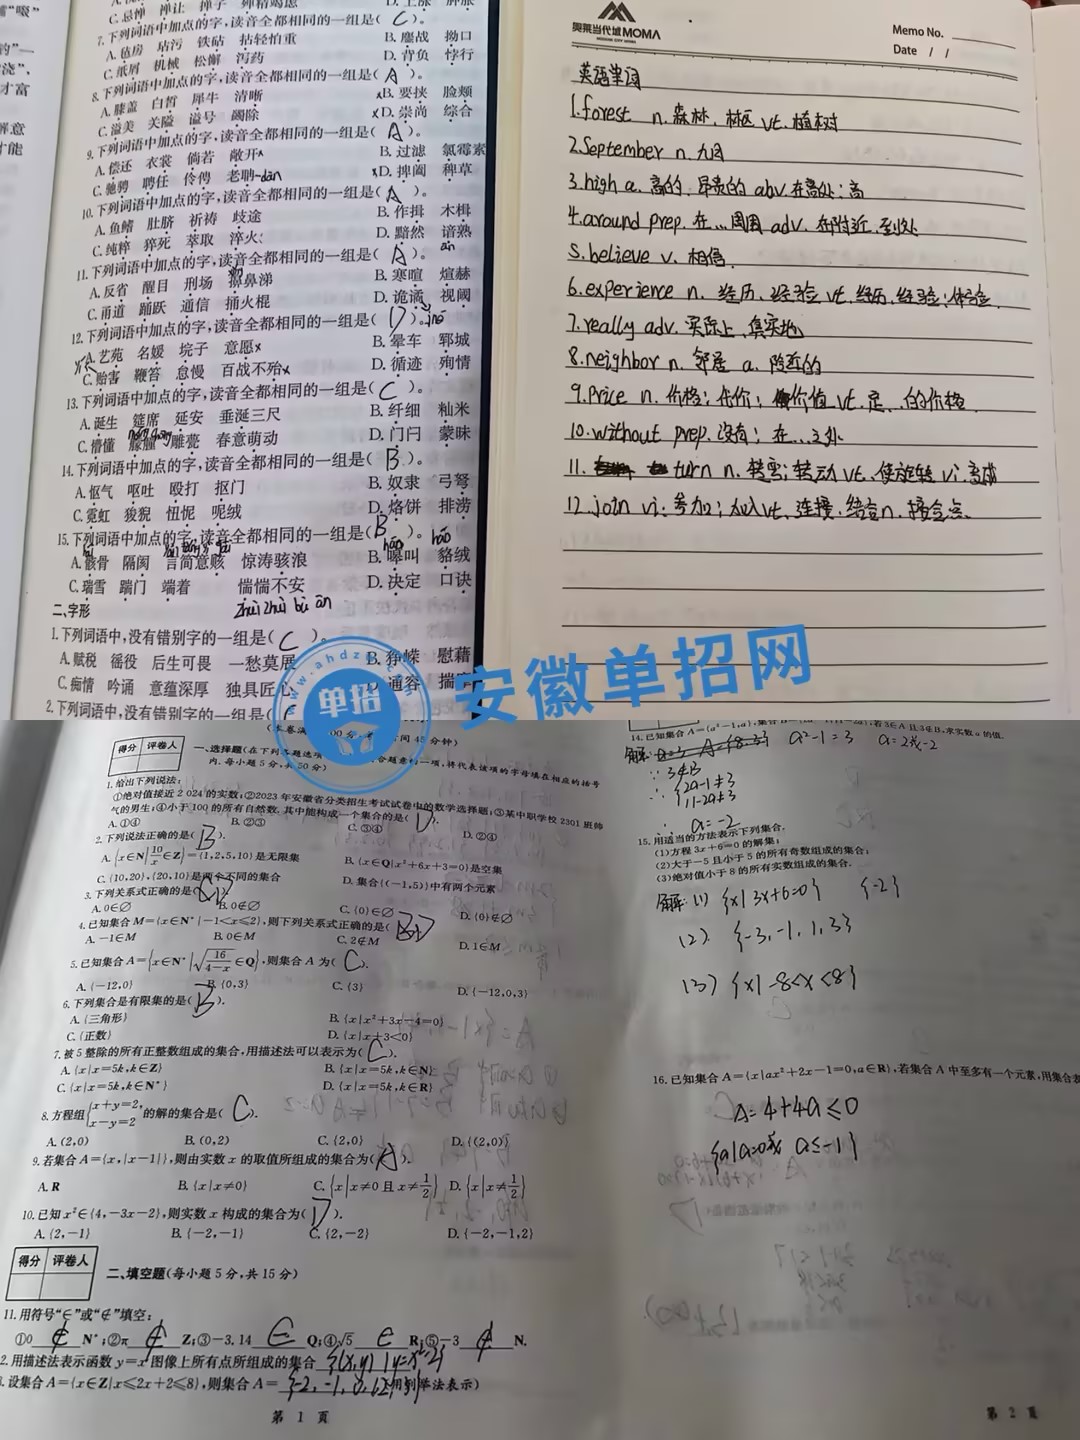 C.忌惮 禅让 掸子 殚精竭虑
7.下列词语中加点的字,读音全都相同的一组是( C )。
A.毡房 玷污 铁砧 拈轻怕重
B.鏖战 拗口
C.纸屑 机械 松懈 泻药
D.背负 悖行
8.下列词语中加点的字,读音全都相同的一组是( A )。
A.膝盖 白皙 犀牛 清晰
B.要挟 脸颊
C.溢美 关隘 谥号 蠲除
D.崇尚 综合
9.下列词语中加点的字,读音全都相同的一组是( A )。
A.偿还 衣裳 倘若 敞开
B.过滤 氯霉素
C.驰骋 聘任 伶俜 老聃-dān
D.捭阖 稗草
10.下列词语中加点的字,读音全都相同的一组是( A )。
A.鱼鳍 肚脐 祈祷 歧途
B.作揖 木楫
C.纯粹 猝死 萃取 淬火
D.黯然 谙熟
ān
11.下列词语中加点的字,读音全都相同的一组是( A )。
A.反省 醒目 刑场 擤鼻涕
B.寒暄 煊赫
C.甬道 踊跃 通信 捅火棍
D.诡谲 视阈
12.下列词语中加点的字,读音全都相同的一组是( D )。
A.艺苑 名媛 垸子 意愿
B.晕车 郓城
C.贻害 鞭笞 怠慢 百战不殆
D.循迹 殉情
13.下列词语中加点的字,读音全都相同的一组是( C )。
A.诞生 筵席 延安 垂涎三尺
B.纤细 籼米
C.懵懂 朦胧 雕甍 春意萌动
D.门闩 蒙昧
14.下列词语中加点的字,读音全都相同的一组是( B )。
A.怄气 呕吐 殴打 抠门
B.奴隶 弓弩
C.霓虹 狻猊 忸怩 呢绒
D.烙饼 排涝
15.下列词语中加点的字,读音全都相同的一组是( B )。
háo háo
A.骸骨 隔阂 言简意赅 惊涛骇浪
B.嗥叫 貉绒
C.瑞雪 踹门 端着 惴惴不安
D.决定 口诀
zhuì zhuì bù ān
二、字形
1.下列词语中,没有错别字的一组是( C )。
A.赋税 徭役 后生可畏 一愁莫展
B.狰嵘 慰藉
C.痴情 吟诵 意蕴深厚 独具匠心
D.通容 揣
2.下列词语中,没有错别字的一组是(
MOMA
Memo No.
Date / /
英语单词
1.forest n.森林、林区 vt.植树
2.September n.九月
3.high a.高的;昂贵的 abv.在高处;高
4.around prep.在…周围 adv.在附近.到处
5.believe v.相信.
6.experience n.经历、经验 vt.经历.经验;体验.
7.really adv.实际上、真实地
8.neighbor n.邻居 a.附近的
9.Price n.价格;代价;价值 vt.定…的价格.
10.without prep.没有;在…之外
11. turn n.转弯;转动 vt.使旋转 vi.变成
12.join vi:参加;加入 vt.连接.结合 n.接合点.
www.ahdz
单招
安徽单招网
得分 评卷人
一、选择题(在下列各题选项 合题意的一项,将代表该项的字母填在相应的括号
内.每小题5分,共50分)
1.给出下列说法:
①绝对值接近2 024的实数;②2023年安徽省分类招生考试试卷中的数学选择题;③某中职学校2301班帅
气的男生;④小于100的所有自然数.其中能构成一个集合的是( D ).
A.①④ B.②③ C.③④ D.②④
2.下列说法正确的是( B ).
A.{x∈N|10/x∈Z}={1,2,5,10}是无限集
B.{x∈Q|x²+6x+3=0}是空集
C.{10,20},{20,10}是两个不同的集合
D.集合{(-1,5)}中有两个元素
3.下列关系式正确的是( ).
A.0∈∅ B.0∉∅ C.{0}∈∅ D.{0}∉∅
4.已知集合M={x∈N*|-1<x≤2},则下列关系式正确的是( D ).
A.-1∈M B.0∈M C.2∉M D.1∈M
5.已知集合A={x∈N*|√16/(4-x)∈Q},则集合A为( C ).
A.{-12,0} B.{0,3} C.{3} D.{-12,0,3}
6.下列集合是有限集的是( B ).
A.{三角形} B.{x|x²+3x-4=0}
C.{正数} D.{x|x+3<0}
7.被5整除的所有正整数组成的集合,用描述法可以表示为( C ).
A.{x|x=5k,k∈Z} B.{x|x=5k,k∈N}
C.{x|x=5k,k∈N*} D.{x|x=5k,k∈R}
8.方程组{x+y=2, x-y=2 的解的集合是( C ).
A.(2,0) B.(0,2) C.{2,0} D.{(2,0)}
9.若集合A={x,|x-1|},则由实数x的取值所组成的集合为( A ).
A.R B.{x|x≠0} C.{x|x≠0且x≠1/2} D.{x|x≠1/2}
10.已知x²∈{4,-3x-2},则实数x构成的集合为( D ).
A.{2,-1} B.{-2,-1} C.{2,-2} D.{-2,-1,2}
得分 评卷人
二、填空题(每小题5分,共15分)
11.用符号“∈”或“∉”填空:
①0 ∉ N*;②π ∉ Z;③-3.14 ∈ Q;④√5 ∈ R;⑤-3 ∉ N.
2.用描述法表示函数y=x²图像上所有点所组成的集合 {(x,y)|y=x²}
.设集合A={x∈Z|x≤2x+2≤8},则集合A= {-2,-1,0,1,2,3} (用列举法表示)
第 1 页
若3∈A且3∉B,求实数a的值.
解: a²-1=3 a=2或-2
∵3∉B
∴{2a-1≠3
11-2a≠3
∴a=-2
15.用适当的方法表示下列集合.
(1)方程3x+6=0的解集;
(2)大于-5且小于5的所有奇数组成的集合;
(3)绝对值小于8的所有实数组成的集合.
解:(1) {x|3x+6=0} {-2}
(2). {-3,-1,1,3}
(3) {x|-8<x<8}
16.已知集合A={x|ax²+2x-1=0,a∈R},若集合A中至多有一个元素,用集合表
Δ=4+4a≤0
{a|a=0或 a≤-1}
第 2 页